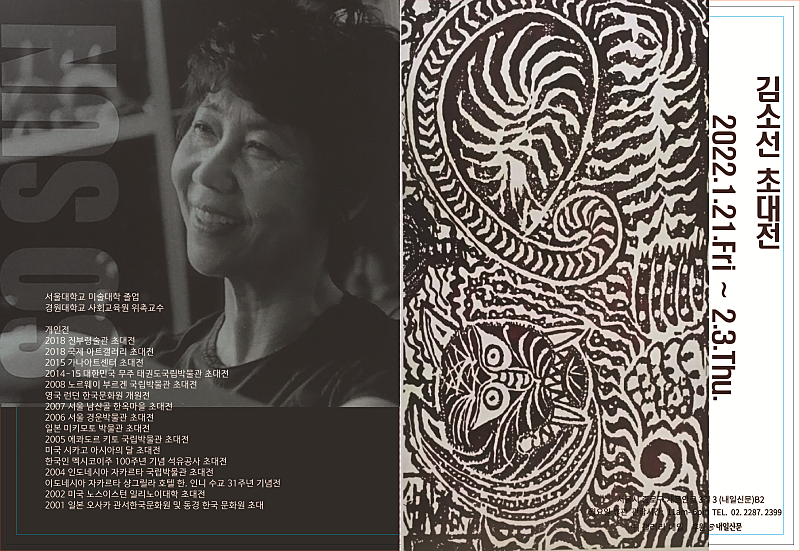 SO SUN
서울대학교 미술대학 졸업
경원대학교 사회교육원 위촉교수
개인전
2018 진부령술관 초대전
2018 국제 아트갤러리 초대전
2015 가나아트센터 초대전
2014-15 대한민국 무주 태권도국립박물관 초대전
2008 노르웨이 부르겐 국립박물관 초대전
영국 런던 한국문화원 개원전
2007 서울 남산골 한옥마을 초대전
2006 서울 경운박물관 초대전
일본 미키모토 박물관 초대전
2005 에콰도르 키토 국립박물관 초대전
미국 시카고 아시아의 달 초대전
한국인 멕시코이주 100주년 기념 석유공사 초대전
2004 인도네시아 자카르타 국립박물관 초대전
이도네시아 자카르타 샹그릴라 호텔 한. 인니 수교 31주년 기념전
2002 미국 노스이스턴 일리노이대학 초대전
2001 일본 오사카 관서한국문화원 및 동경 한국 문화원 초대
김소선 초대전
2022.1.21.Fri ~ 2.3.Thu.
3 (내일신문)B2
11am-6pm TEL. 02. 2287. 2399
내일신문